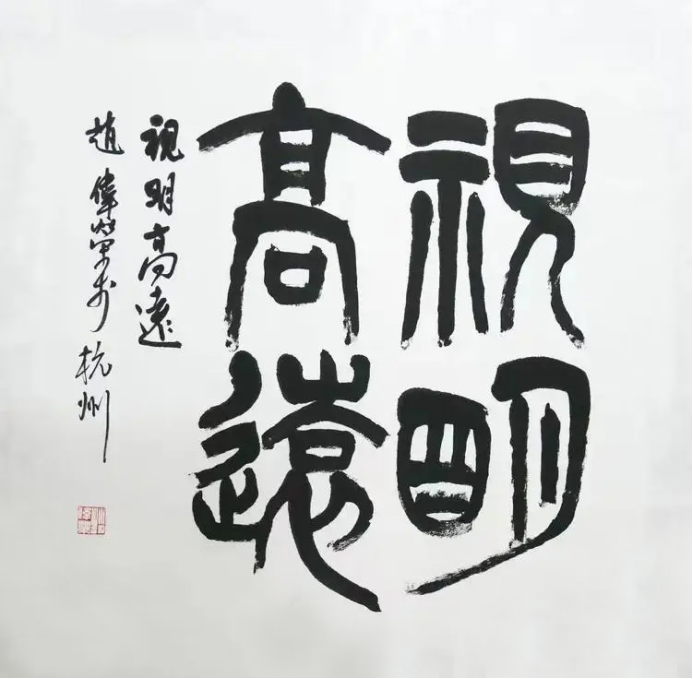 視明
高遠
視明高遠
趙偉榮书杭州